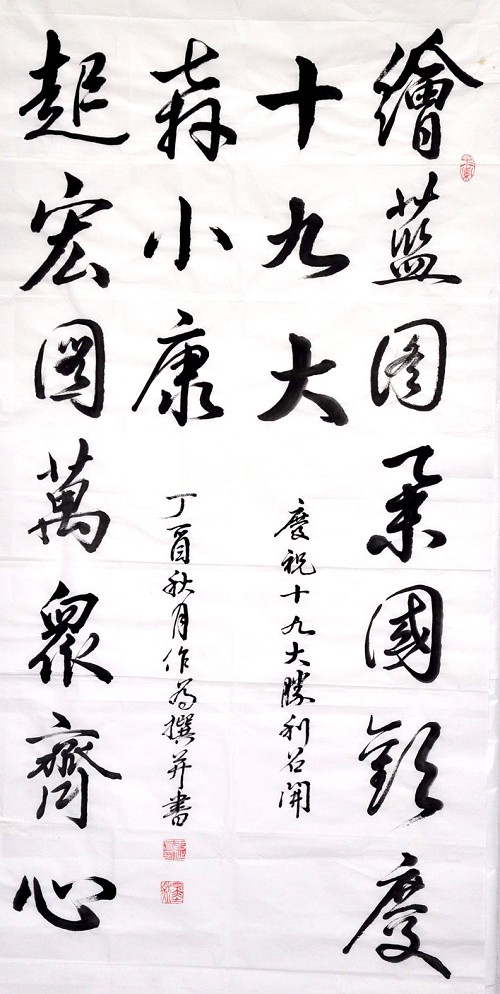 繪藍图舉國歡慶
十九大
慶祝十九大勝利召開
起宏圖萬眾齊心
奔小康
丁酉秋月作為撰并書